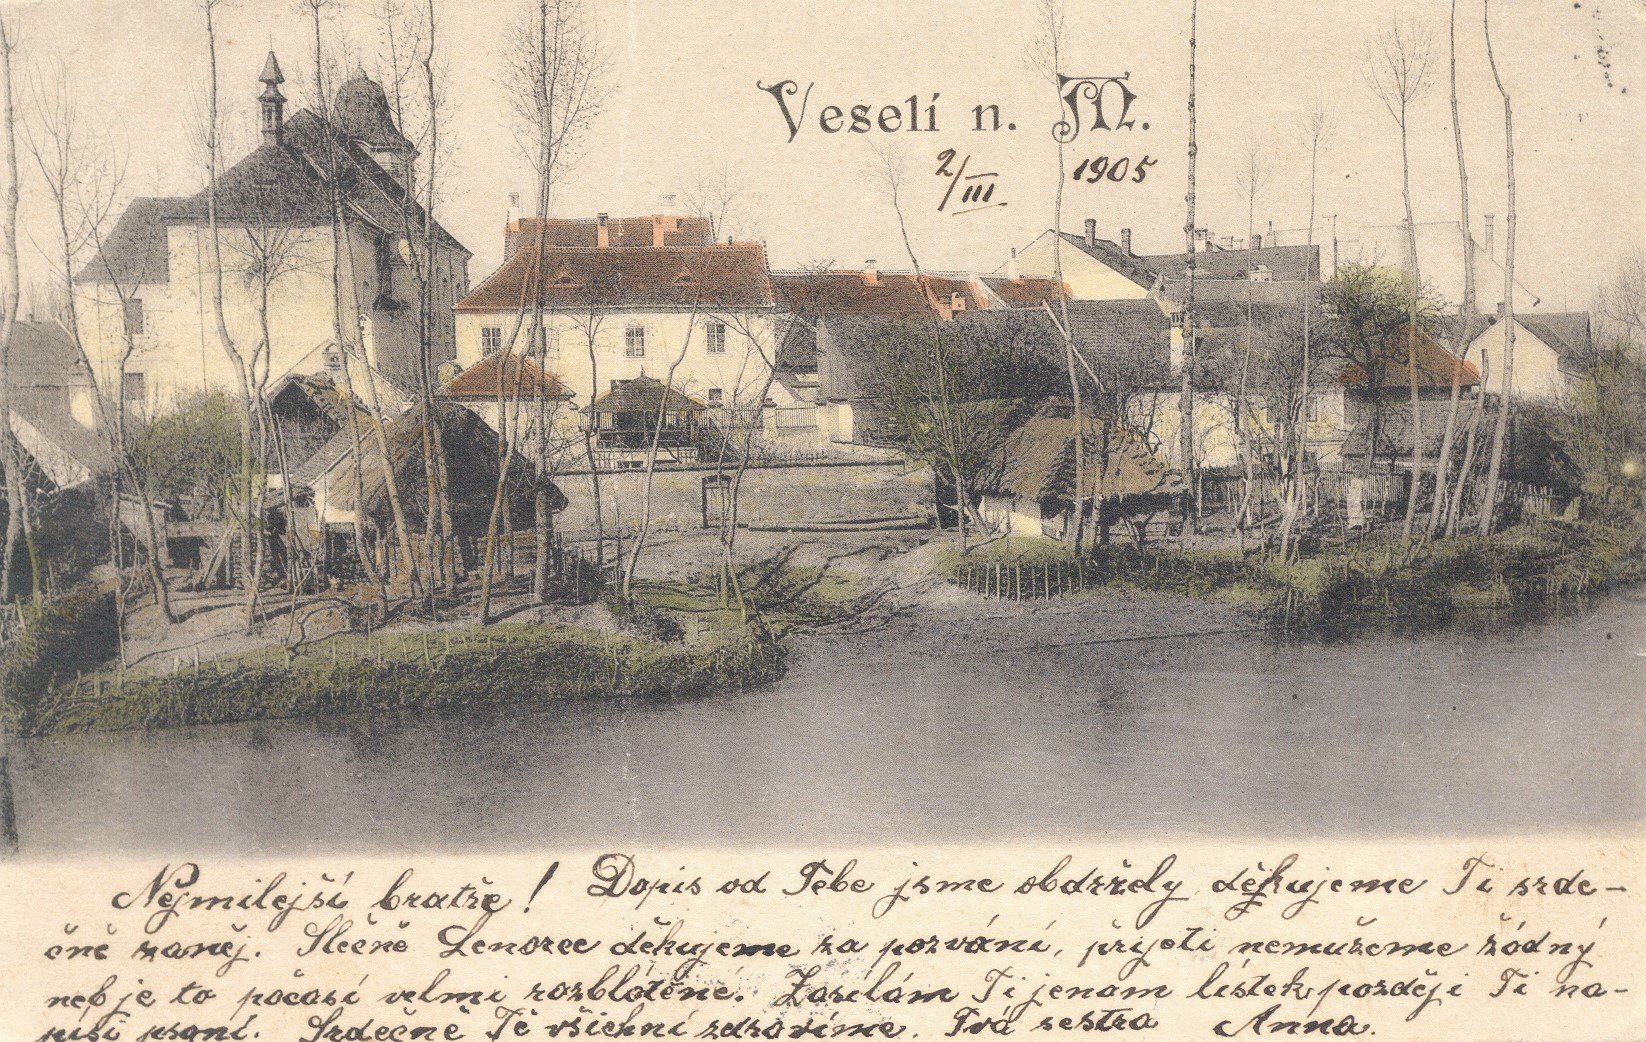 Veselí n. M.
2/III 1905
Nejmilejší bratře! Dopis od Tebe jsme obdrželi, děkujeme Ti srde-
čně zaněj. Slečně Lenorce děkujeme za pozvání, přijeti nemužeme žádný
neb je to počasí velmi rozblátěné. Zasílám Ti jenom lístek, pozděj i Ti na-
píši psaní. Srdečně Tě všichni zdravíme. Tvá sestra Anna.